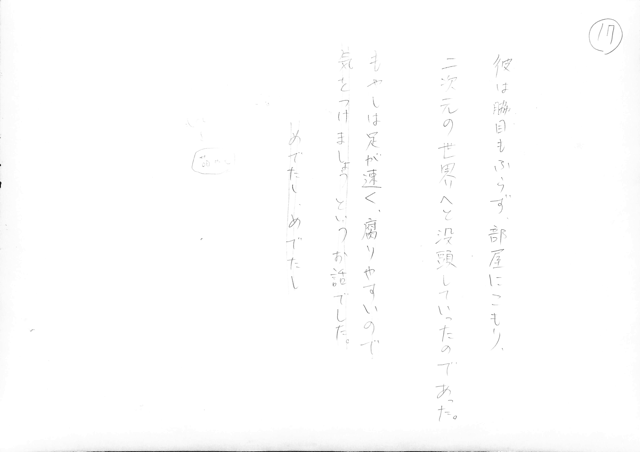 17
彼は脇目もふらず、部屋にこもり、
二次元の世界へと没頭していったのであった。
もやしは足が速く、腐りやすいので
気をつけましょう というお話でした。
めでたし、めでたし